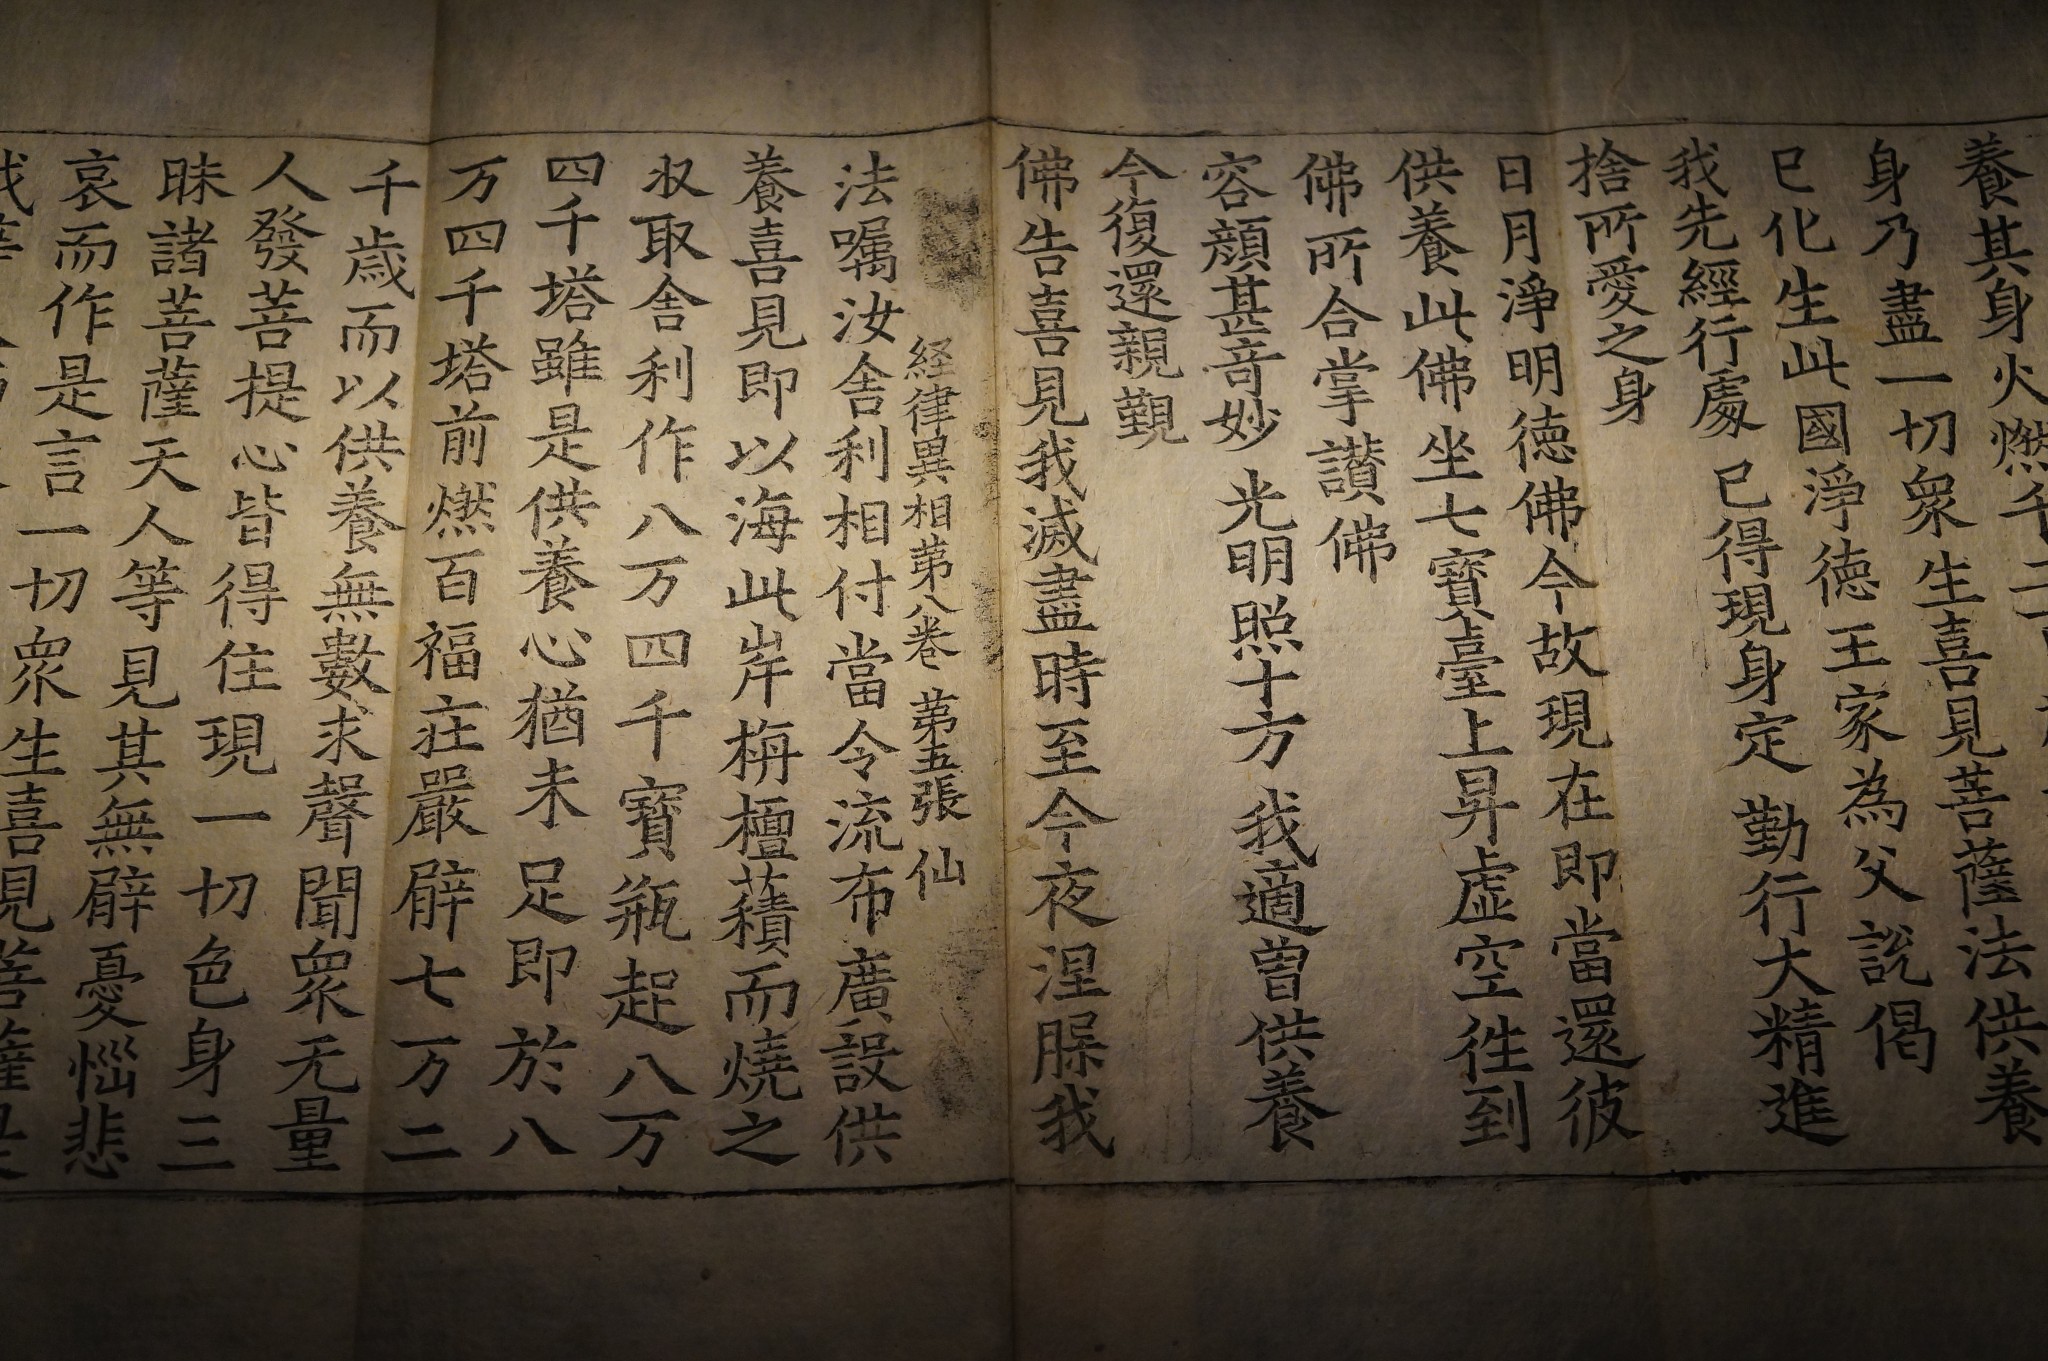 養其身火燃千二
身乃盡一切衆生喜見菩薩法供養
已化生此國淨徳王家為父說偈
我先經行處 已得現身定 勤行大精進
捨所愛之身
日月淨明徳佛今故現在即當還彼
供養此佛坐七寳臺上昇虚空徃到
佛所合掌讃佛
容顔甚竒妙 光明照十方 我適曽供養
今復還親覲
佛告喜見我滅盡時至今夜涅槃我
経律異相苐八巻 苐五張 仙
法嘱汝舎利相付當令流布廣設供
養喜見即以海此岸栴檀𧂐而燒之
収取舎利作八万四千寳瓶起八万
四千塔雖是供養心猶未足即於八
万四千塔前燃百福莊嚴臂七万二
千歳而以供養無數求聲聞衆无量
人發菩提心皆得住現一切色身三
昧諸菩薩天人等見其無臂憂惱悲
哀而作是言一切衆生喜見菩薩是